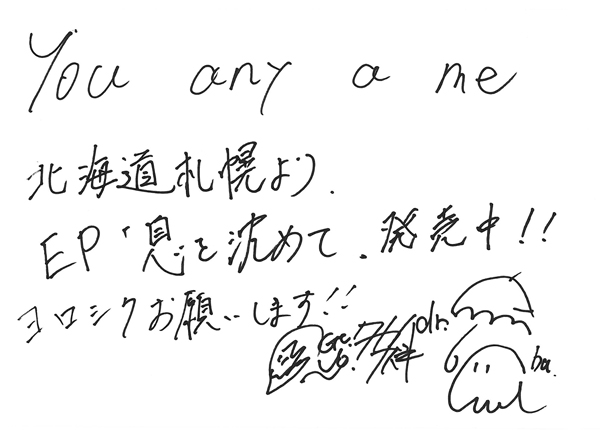 You any a me
北海道札幌より.
EP「息を沈めて.発売中!!
ヨロシクお願いします!!
Gt. Vo.
dr.
ba.